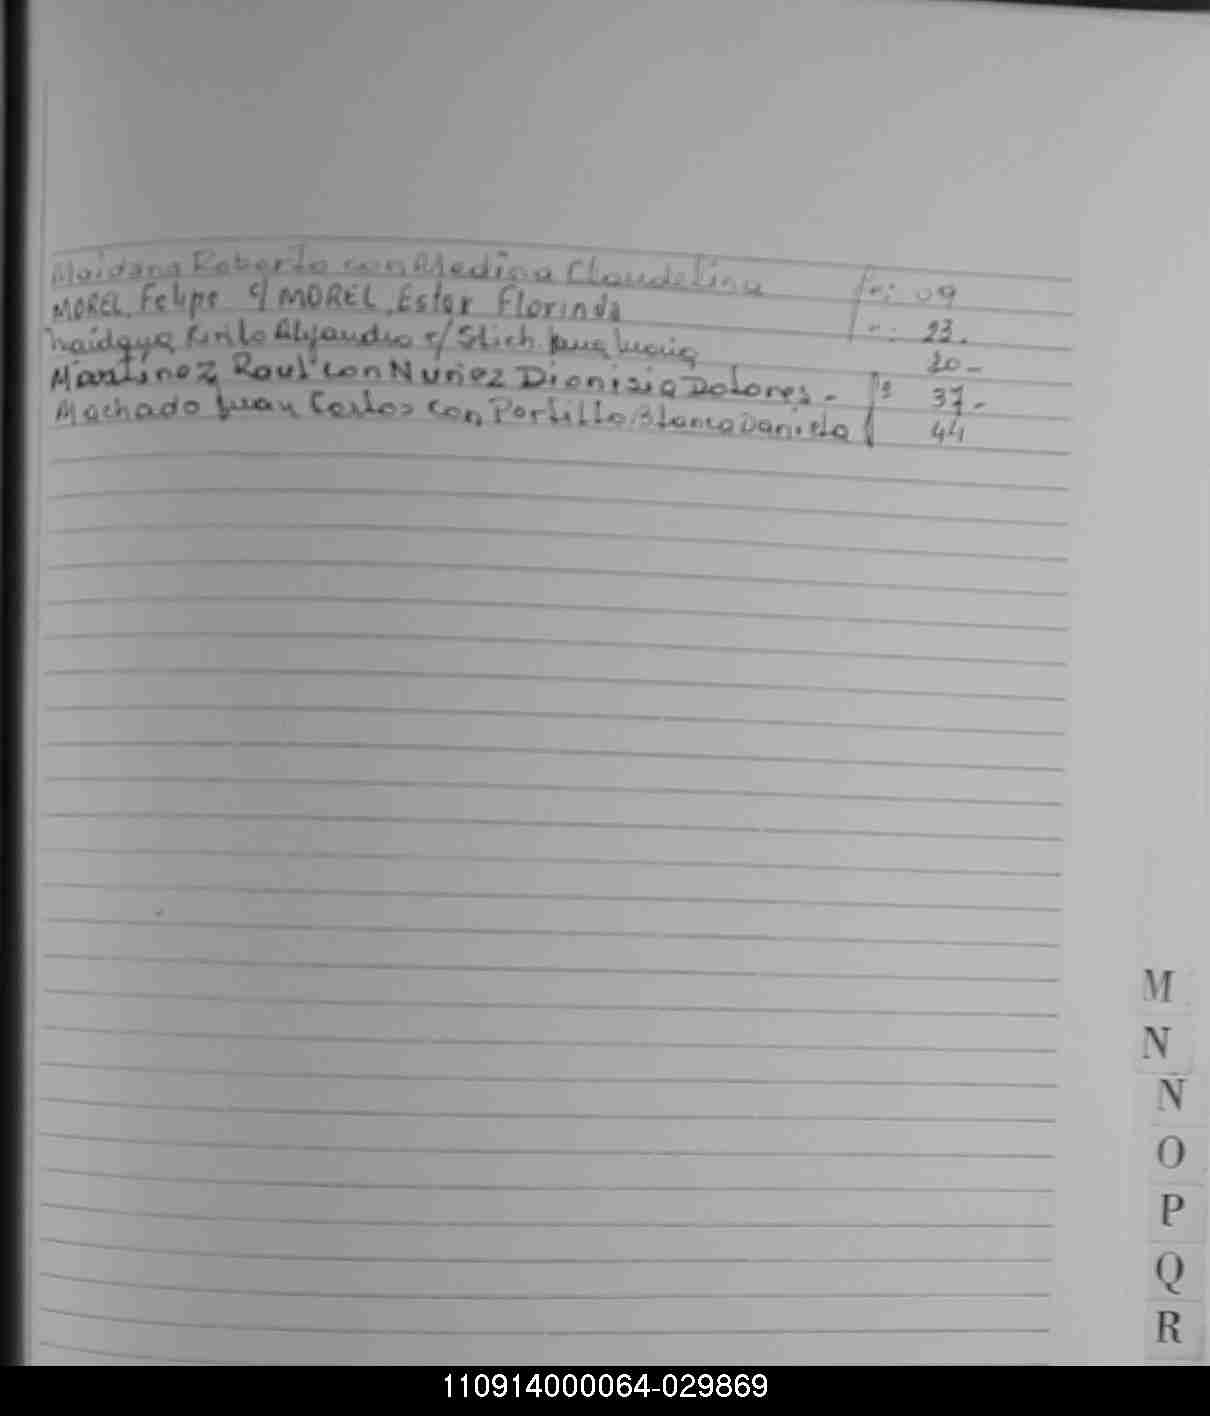 Maidana Roberto con Medina Claudelina fo: 09
MOREL, Felipe c/ MOREL, Ester Florinda ": 23.
Maidana Cirilo Alejandro c/ Stich Juana Maria 30-
Martinez Raul con Nuñez Dionisia Dolores.- fº 37.-
Machado Juan Carlos con Portillo Blanca Daniela 44
M
N
N
O
P
Q
R
110914000064-029869